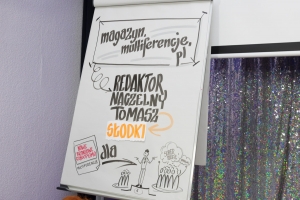 magazyn.
multiferencje.
pl
REDAKTOR
NACZELNY
TOMASZ
SŁODKI
dla